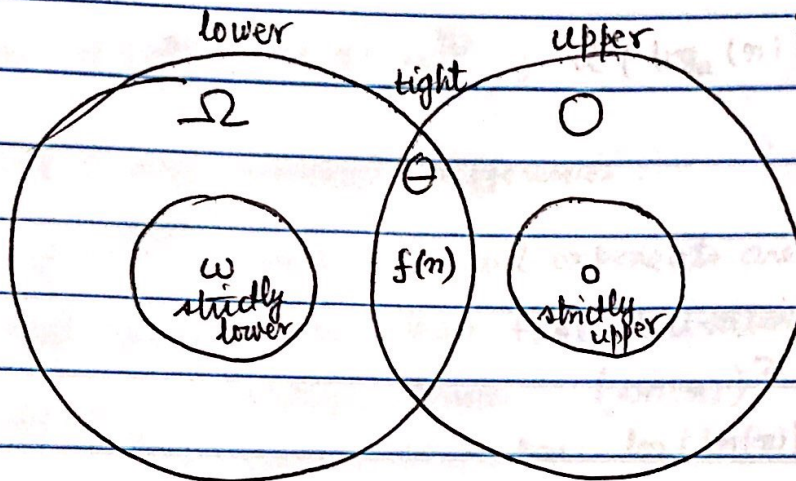 lower
upper
tight
Ω
O
Θ
f(n)
ω
strictly
lower
o
strictly
upper